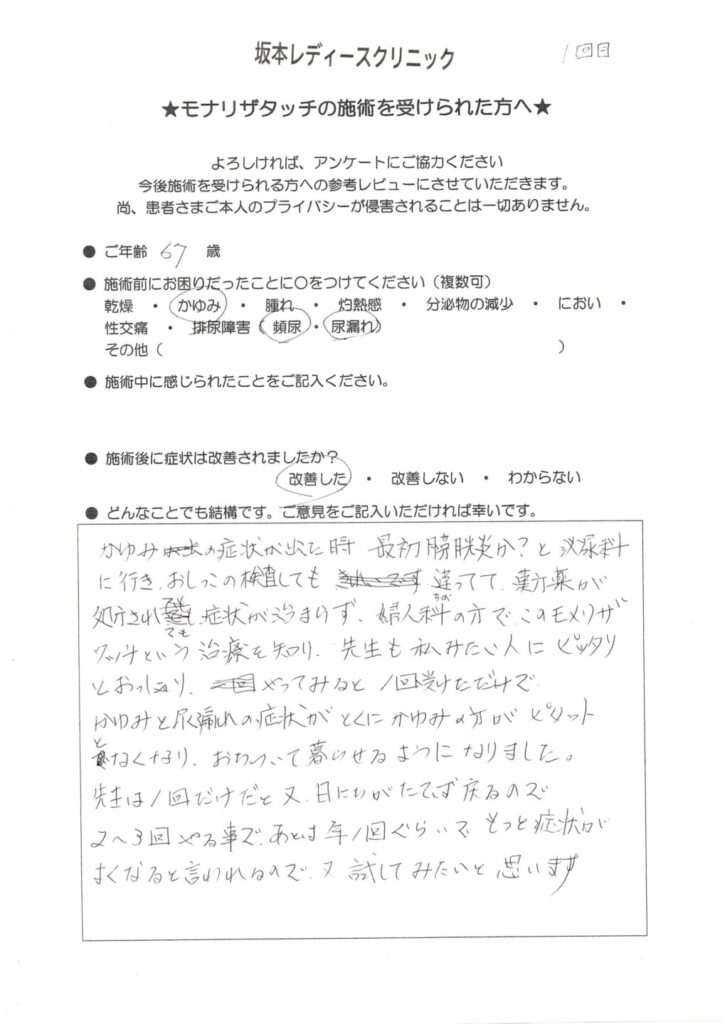 坂本レディースクリニック
1回目
★モナリザタッチの施術を受けられた方へ★
よろしければ、アンケートにご協力ください
今後施術を受けられる方への参考レビューにさせていただきます。
尚、患者さまご本人のプライバシーが侵害されることは一切ありません。
● ご年齢 67 歳
● 施術前にお困りだったことに〇をつけてください（複数可）
乾燥 ・ かゆみ ・ 腫れ ・ 灼熱感 ・ 分泌物の減少 ・ におい ・
性交痛 ・ 排尿障害（ 頻尿 ・ 尿漏れ）
その他（ ）
● 施術中に感じられたことをご記入ください。
● 施術後に症状は改善されましたか？
改善した ・ 改善しない ・ わからない
● どんなことでも結構です。ご意見をご記入いただければ幸いです。
かゆみの症状が出た時 最初膀胱炎か？と泌尿科
に行き、おしっこの検査しても 違ってて、漢方薬が
処方され 症状が治まらず、婦人科の方でこのモメリザ
タッチという治療を知り、先生も私みたい人にピッタリ
とおっしゃり、やってみると1回受けただけで
かゆみと尿漏れの症状がとくにかゆみの方がピタット
となくなり、おちついて暮らせるようになりました。
先生は1回だけだと又、日にちがたてば戻るので
2〜3回やる事で、あとは年1回ぐらいで、もっと症状が
よくなると言われるので、又 試してみたいと思います